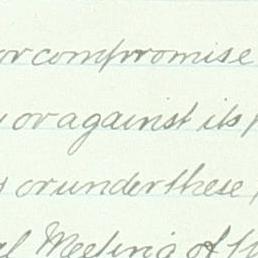 or compromise
or against its
or under these
Meeting of